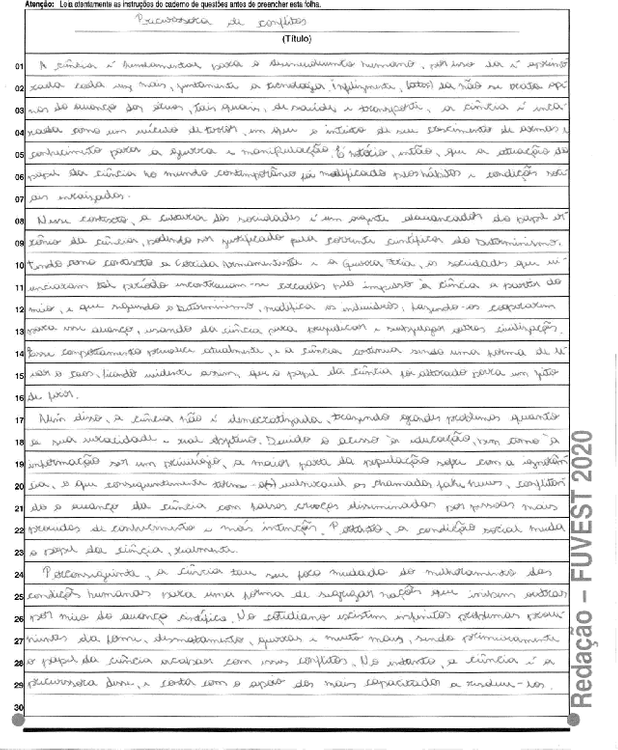 Atenção: Leia atentamente as instruções do caderno de questões antes de preencher esta folha.
Precursora de conflitos
(Título)
01 A ciência é fundamental para o desenvolvimento humano, por isso ela é aprimo
02 rada cada vez mais, juntamente a tecnologia. Infelizmente, ela não se trata ape
03 nas do avanço das áreas, tais quais, de saúde e transporte, a ciência é enca
04 rada como um veículo de terror, em que o intuito de seu crescimento de armas e
05 conhecimento para a guerra e manipulação. É notório, então, que a atuação do
06 papel da ciência no mundo contemporâneo foi modificado pelos hábitos e condições soci
07 ais enraizados.
08 Nesse contexto, a cultura das sociedades é um agente alavancador do papel er
09 rôneo da ciência, podendo ser justificado pela corrente científica do Determinismo.
10 Tendo como contexto a Corrida Armamentista e a Guerra Fria, as sociedades que vi
11 venciaram tal período encontravam-se cercadas pelo impulso à ciência a partir do
12 meio, e que segundo o Determinismo, modifica os indivíduos, fazendo-os cooperarem
13 para esse avanço, usando da ciência para prejudicar e subjugar outras civilizações.
14 Esse comportamento permanece atualmente, e a ciência continua sendo uma forma de le
15 var o caos, ficando evidente assim, que o papel da ciência foi alterado para um jeito
16 de pior.
17 Além disso, a ciência não é democratizada, trazendo grandes problemas quanto
18 a sua veracidade e real objetivo. Devido o acesso à educação, bem como à
19 informação ser um privilégio, a maior parte da população sofre com a ignorân
20 cia, o que consequentemente torna- vulnerável as chamadas fake news, conflitan
21 do o avanço da ciência com falsas crenças disseminadas por pessoas mais
22 providas de conhecimento e más intenções. Portanto, a condição social muda
23 o papel da ciência, realmente.
24 Por conseguinte, a ciência tem seu foco mudado do melhoramento das
25 condições humanas para uma forma de segregar nações que invisem outras
26 por meio do avanço científico. No cotidiano existem infinitos problemas prove
27 nientes da fome, desmatamento, guerras e muito mais, sendo primeiramente
28 o papel da ciência acabar com esses conflitos. No entanto, a ciência é a
29 precursora desse, e conta com o apoio dos mais capacitados a resolvê-los.
30
Redação – FUVEST 2020